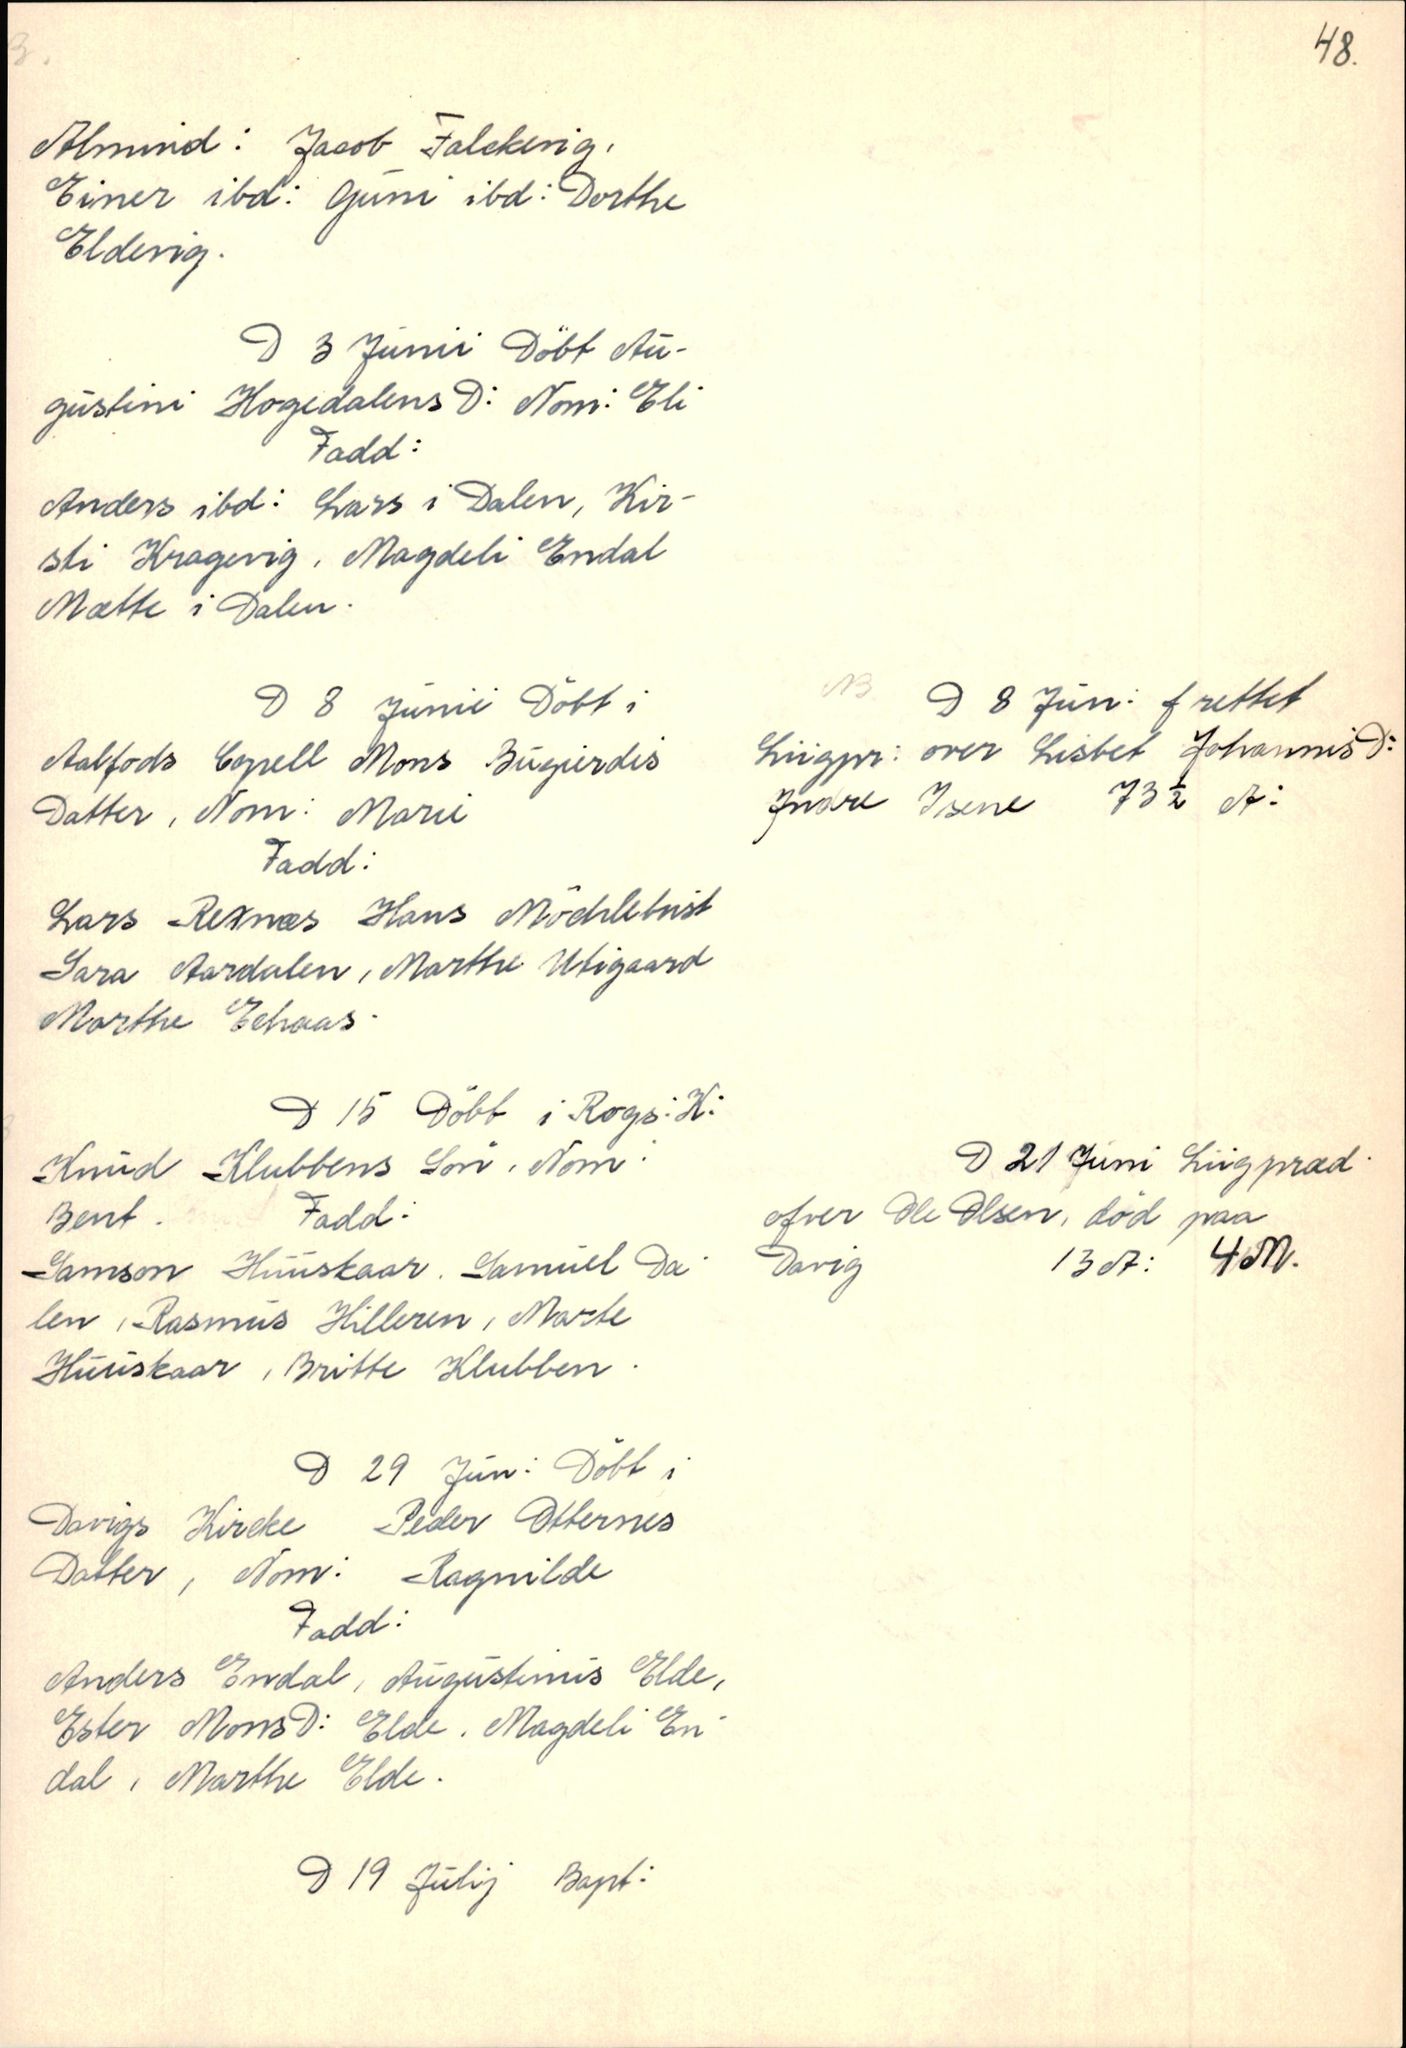 48.
Almind: Jacob Falckevig,
Einer ibd: Guni ibd: Dorthe
Eldevig.
D 3 Junii Döbt Au-
gustini Hogedalens D: Nom: Eli
Fadd:
Anders ibd: Lars i Dalen, Kir-
sti Kragevig, Magdeli Endal
Mætte i Dalen.
D 8 Junii Döbt i
Aalfods Capell Mons Bugierdis
Datter, Nom: Marie
Fadd:
Lars Rexnæs Hans Möchlebust
Sara Aardalen, Marthe Utigaard
Marthe Echaas.
D 15 Döbt i Rogs: K:
Knud Klubbens Sön, Nom:
Bent. Fadd:
Samson Huuskaar. Samuel Da-
len, Rasmus Hilleren, Marte
Huuskaar, Britte Klubben.
D 29 Jun: Döbt i
Davigs Kircke Peder Otternes
Datter, Nom: Ragnilde
Fadd:
Anders Endal, Augustinus Elde,
Ester Mons D: Elde. Magdeli En-
dal, Marthe Elde.
D 19 Julij Bapt:
NB D 8 Jun: f rettet
Liigpr: over Lisbet Johannis D:
Indre Isene 73 ½ A:
D 21 Juni Liigpræd.
ofver Ole Olsen, död paa
Davig 13 A: 4 M.